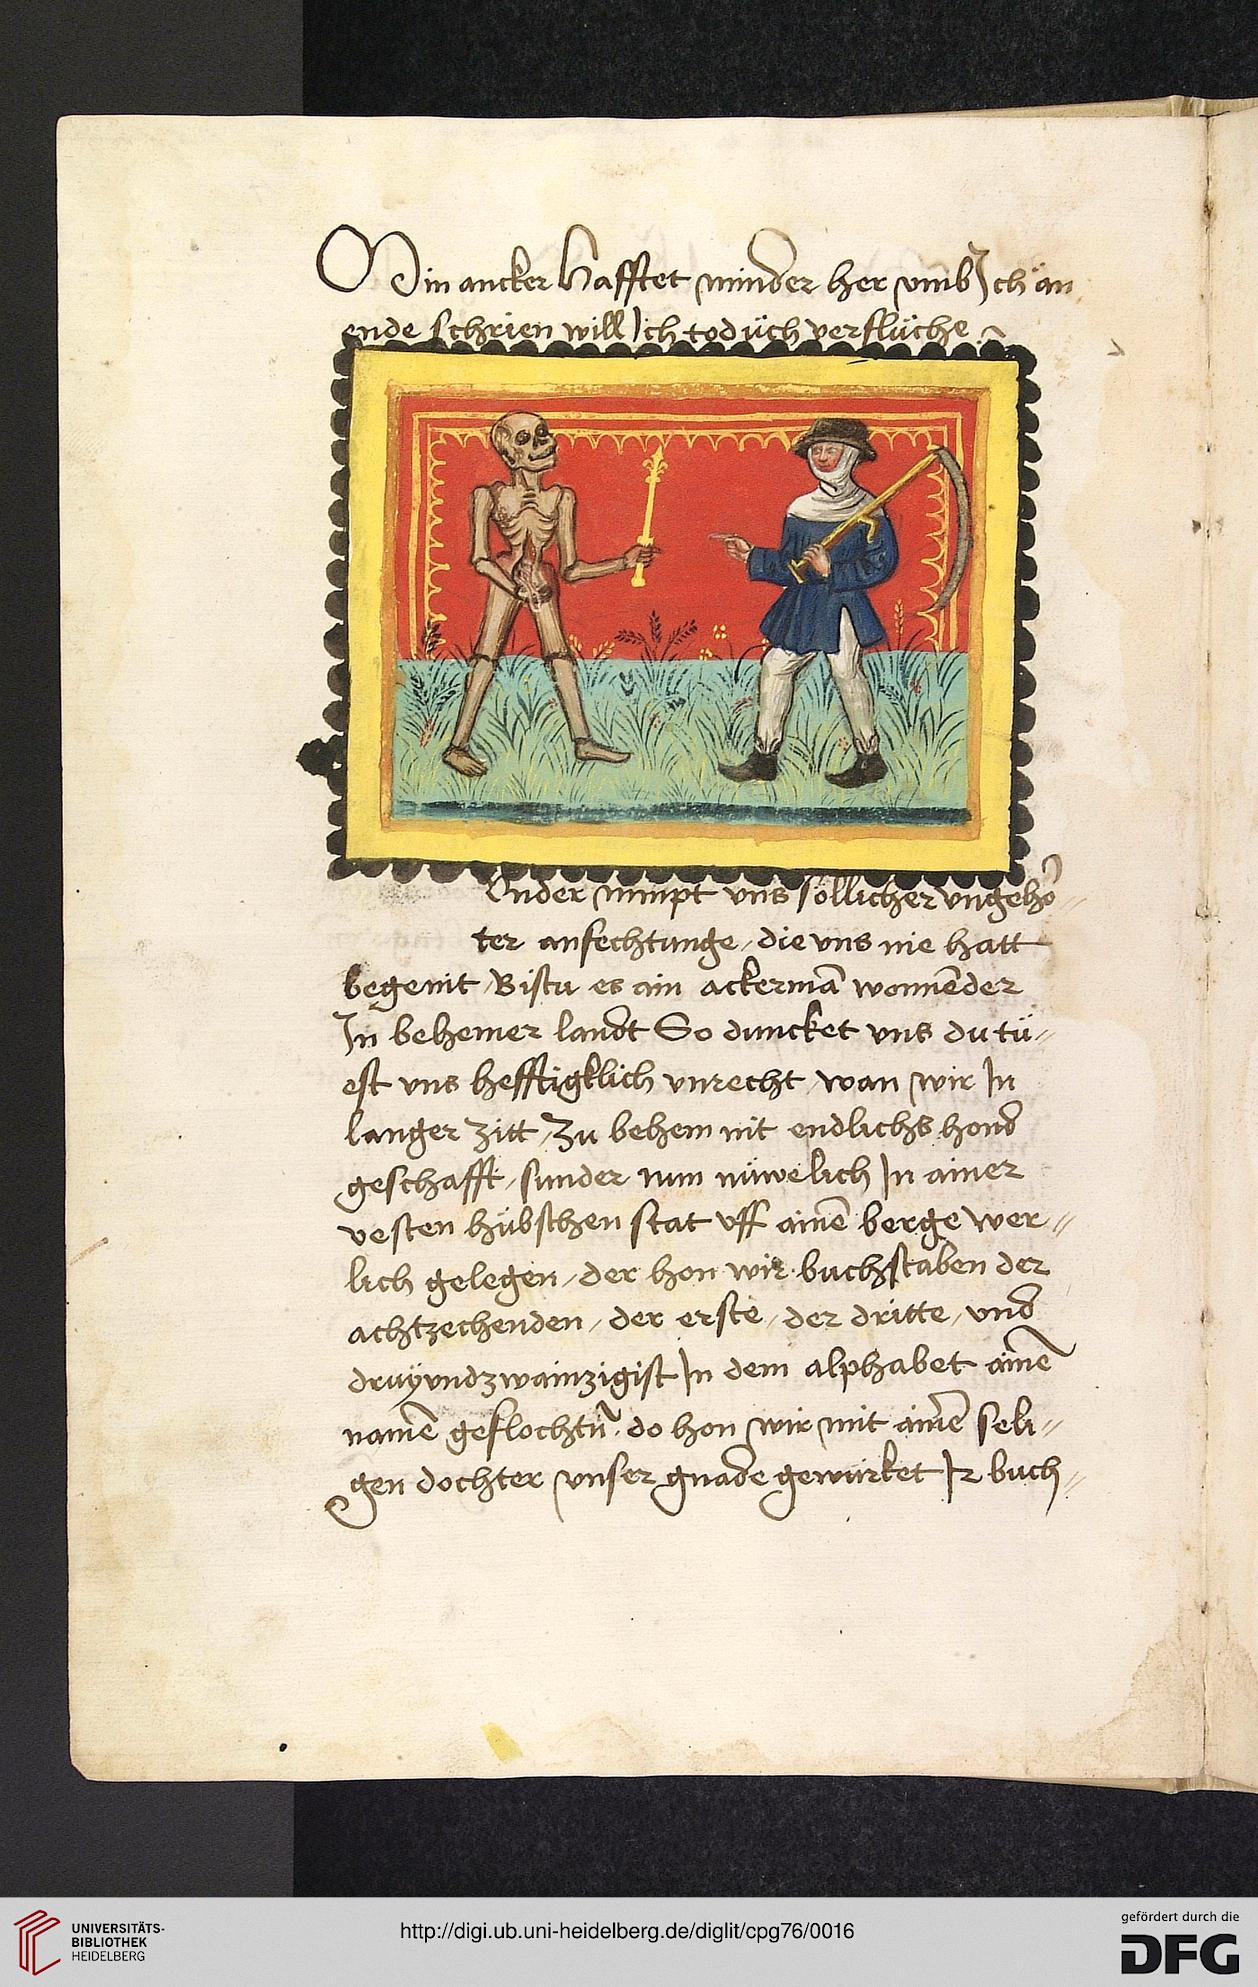 Min ancker hafftet minder her vmb Ich an
ende schrien will Ich tod üch verflüche
Under nimpt vns söllicher vngehö
ter anfechtunge / die vns nie hatt
begenit / Bistu es ain ackermā wonnēder
In behemer landt So duncket vns du tü=
est vns hefftigklich vnrecht / wan wir In
langer zitt / zu behem nit endlichs hond
geschafft / sunder nun nüwelich In ainer
vesten hübschen stat vff ainē berge wer=
lich gelegen / der hon wir buchstaben der
achtzechenden / der erste / der dritte / vnd
druyvndzwainzigist In dem alphabet ainē
namē geflochtn̄ / do hon wir mit ainer seli=
gen dochter vnser gnade gewürket Ir buch=
UNIVERSITÄTS-
BIBLIOTHEK
HEIDELBERG
http://digi.ub.uni-heidelberg.de/diglit/cpg76/0016
gefördert durch die
DFG